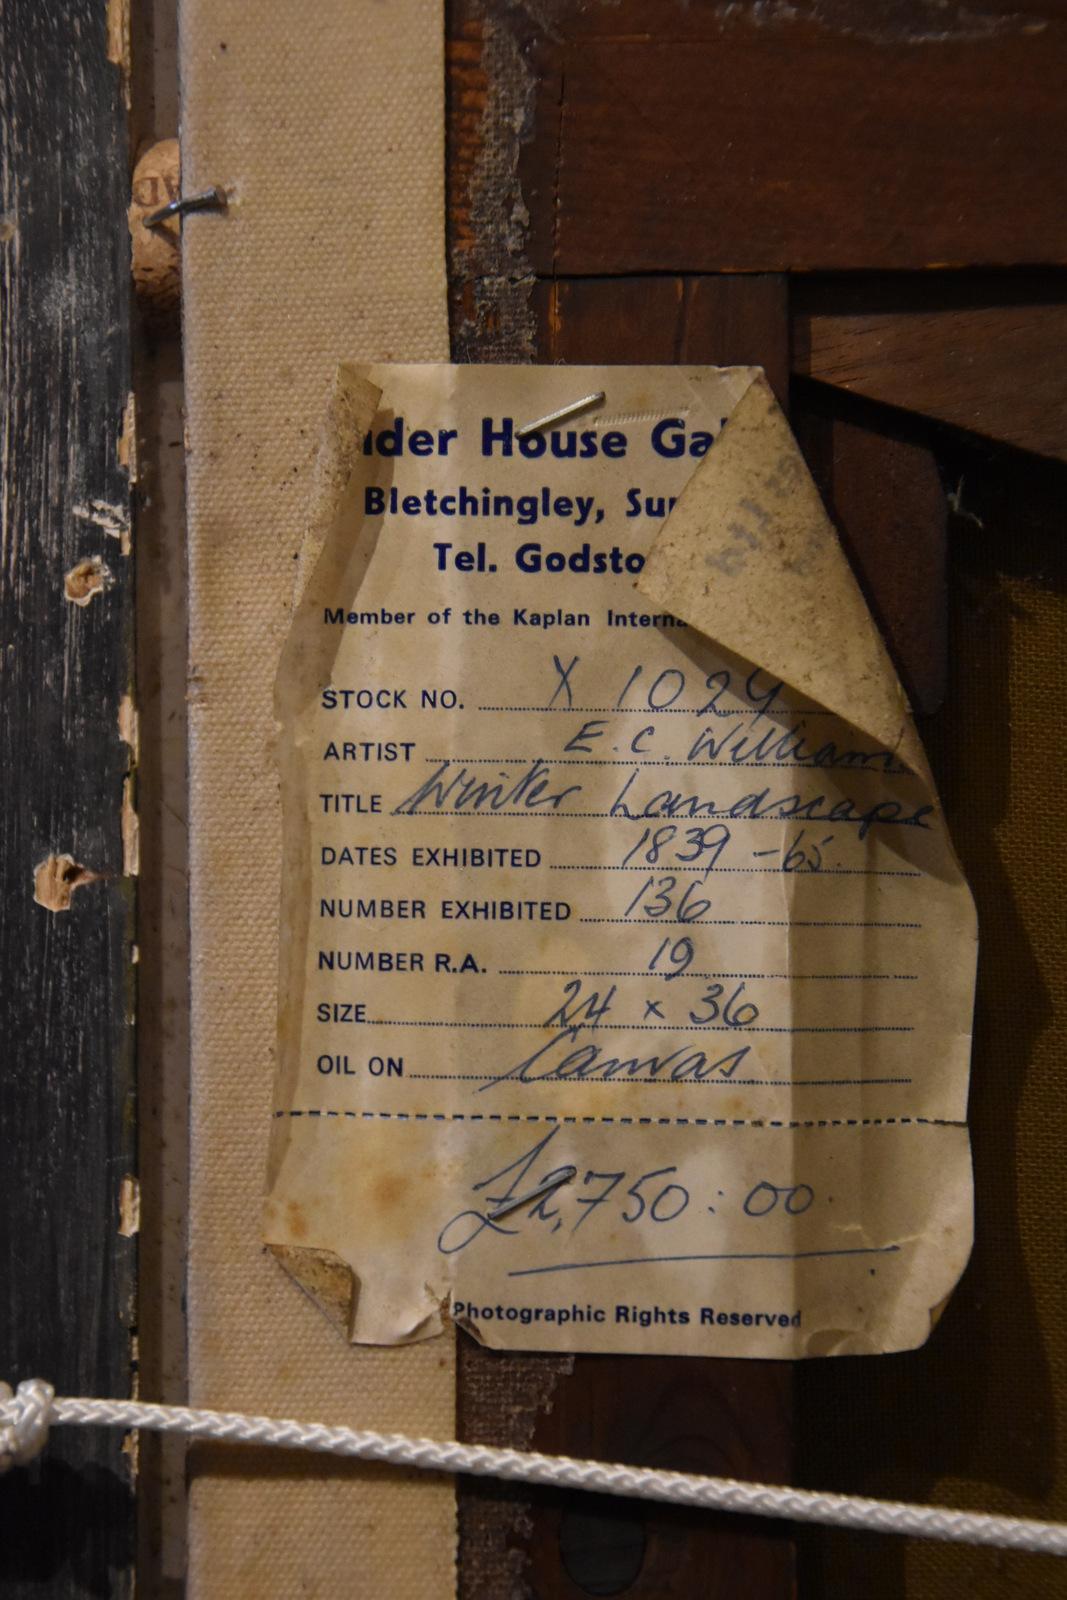 AD
der House Ga
Bletchingley, Su
Tel. Godsto
Member of the Kaplan Interna
STOCK NO. X 1024
ARTIST E.C. William
TITLE Winter Landscape
DATES EXHIBITED 1839 - 65.
NUMBER EXHIBITED 136
NUMBER R.A. 19
SIZE 24 x 36
OIL ON Canvas
£2,750:00
Photographic Rights Reserved